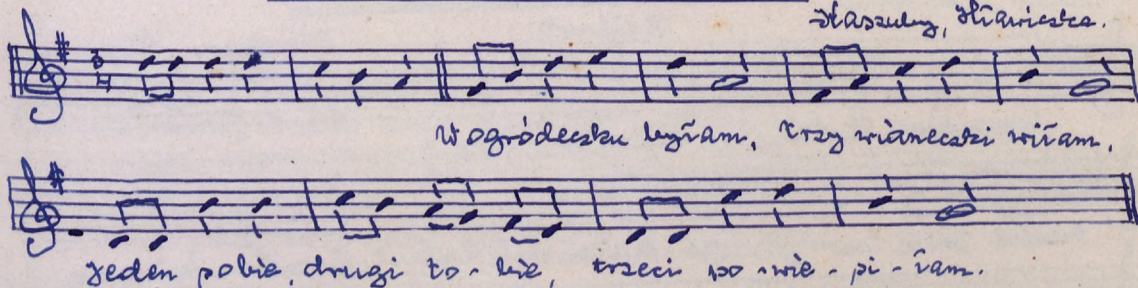 Kaszuby, Hławiczka.
3 4
W ogródeczku byłam, trzy wianeczki wiłam,
Jeden sobie, drugi to-bie, trzeci po-wie-si-łam.